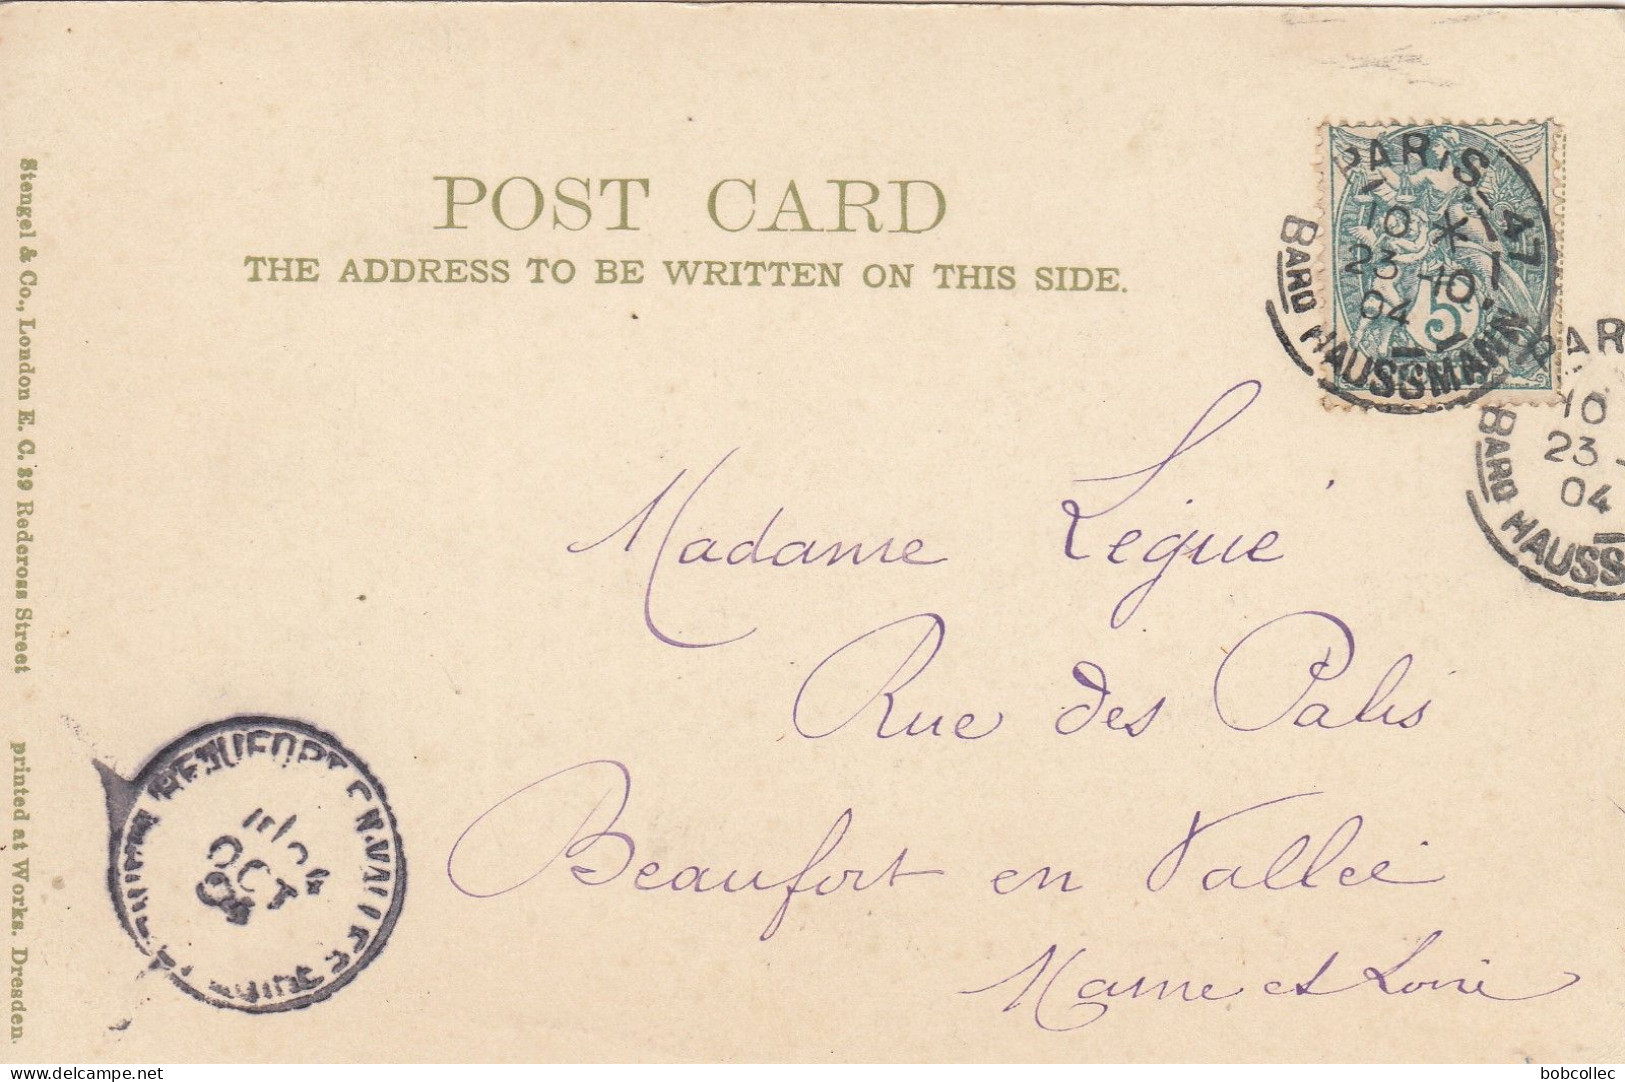 POST CARD
THE ADDRESS TO BE WRITTEN ON THIS SIDE.
Stengel & Co., London E. C. 39 Redcross Street printed at Works. Dresden.
PARIS 47
10
23 10
04
5
BARD HAUSSMANN
PAR
10
23
04
BARD HAUSS
Madame Legué
Rue des Palis
Beaufort en Vallée
Maine et Loire
BEAUFORT EN VALLEE
OCT
04
delcampe.net
bobcollec